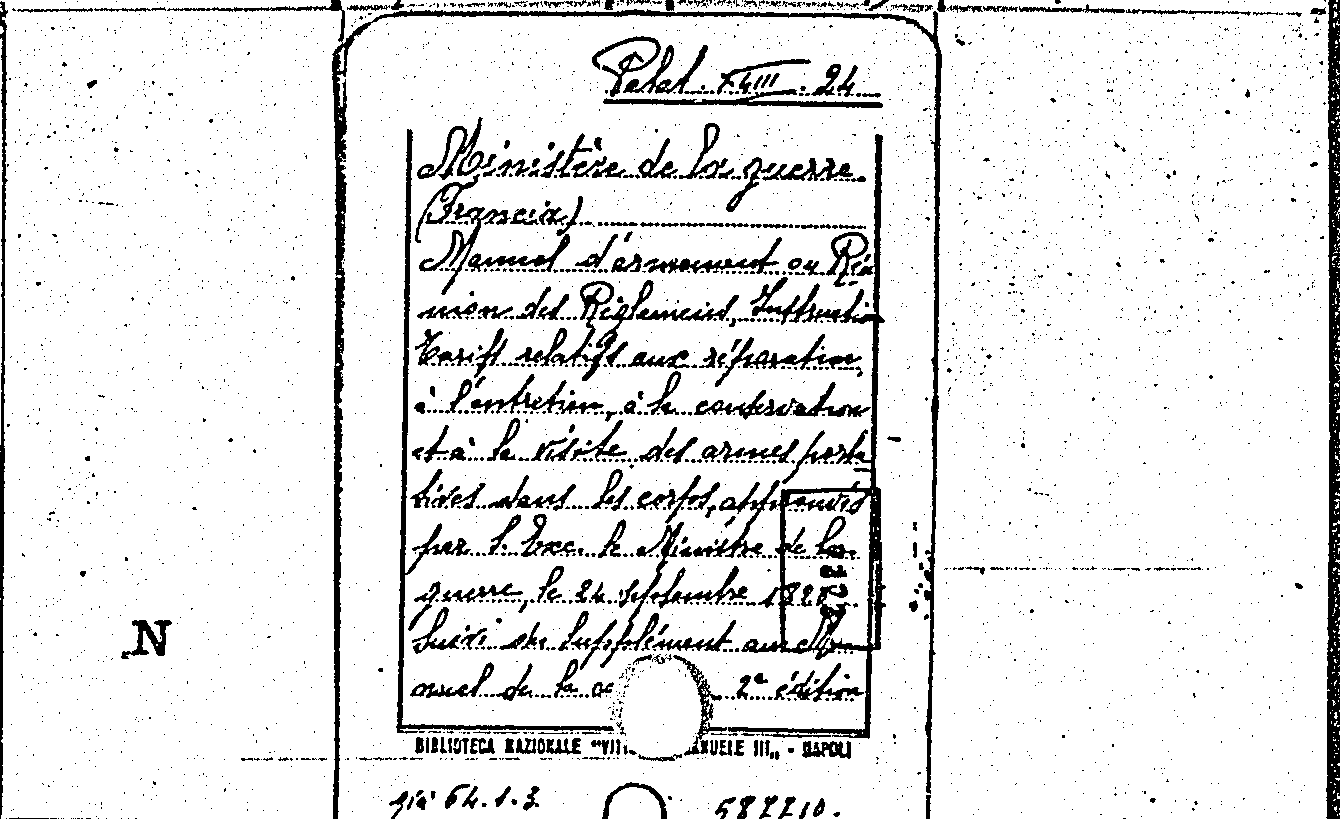 Palat. XLIII. 24
Ministère de la guerre.
(Francia)
Manuel d'armement ou Réu
nion des Réglemens, Instruction
Tarifs relatifs aux réparation,
à l'entretien, à la conservation
et à la visite des armes porta
tives dans les corps, approuvés
par S. Exc. le Ministre de la
guerre, le 24 septembre
Suivi du Supplément au Ma
nuel de la 2e édition
BIBLIOTECA NAZIONALE "VITT ANUELE III„ - NAPOLI
già 64.1.3.
587710.
N